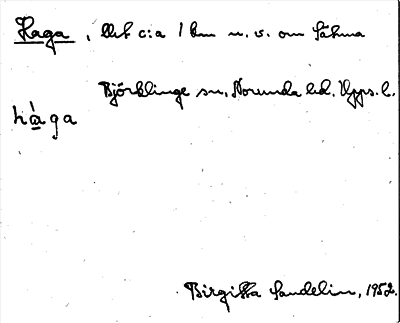 Haga, llht c:a 1 km n.v. om Sätuna
Björklinge sn, Norunda hd. Upps. l.
hàga
Birgitta Sandelin, 1952.